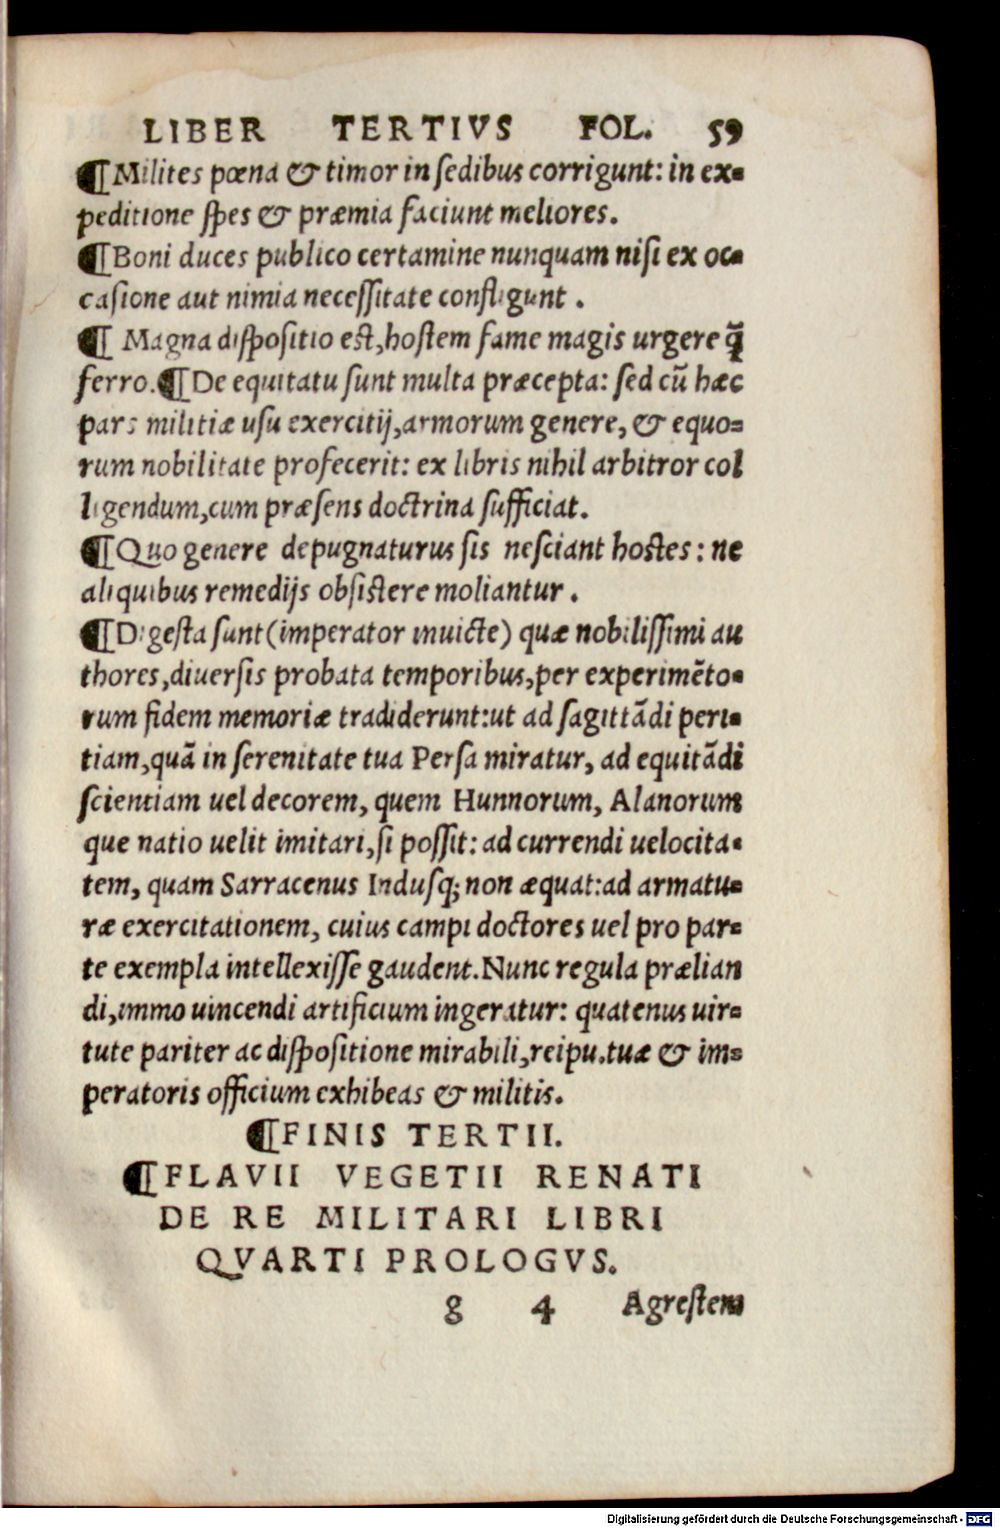 LIBER TERTIVS FOL. 59
¶Milites pœna & timor in ſedibus corrigunt: in ex-
peditione ſpes & præmia faciunt meliores.
¶Boni duces publico certamine nunquam niſi ex oc-
caſione aut nimia neceſſitate confligunt .
¶ Magna diſpoſitio eſt,hoſtem fame magis urgere q̃
ferro.¶De equitatu ſunt multa præcepta: ſed cũ hæc
pars militiæ uſu exercitij,armorum genere, & equo-
rum nobilitate profecerit: ex libris nihil arbitror col
ligendum,cum præſens doctrina ſufficiat.
¶Quo genere depugnaturus ſis neſciant hoſtes: ne
aliquibus remedijs obſiſtere moliantur .
¶Digeſta ſunt(imperator inuicte) quæ nobiliſſimi au
thores,diuerſis probata temporibus,per experimẽto-
rum fidem memoriæ tradiderunt:ut ad ſagittãdi peri-
tiam,quã in ſerenitate tua Perſa miratur, ad equitãdi
ſcientiam uel decorem, quem Hunnorum, Alanorum
que natio uelit imitari,ſi poſſit: ad currendi uelocita-
tem, quam Sarracenus Induſq; non æquat:ad armatu-
ræ exercitationem, cuius campi doctores uel pro par-
te exempla intellexiſſe gaudent.Nunc regula prælian
di,immo uincendi artificium ingeratur: quatenus uir-
tute pariter ac diſpoſitione mirabili,reipu.tuæ & im-
peratoris officium exhibeas & militis.
¶FINIS TERTII.
¶FLAVII VEGETII RENATI
DE RE MILITARI LIBRI
QVARTI PROLOGVS.
g 4 Agreſtem
Digitalisierung gefördert durch die Deutsche Forschungsgemeinschaft - DFG